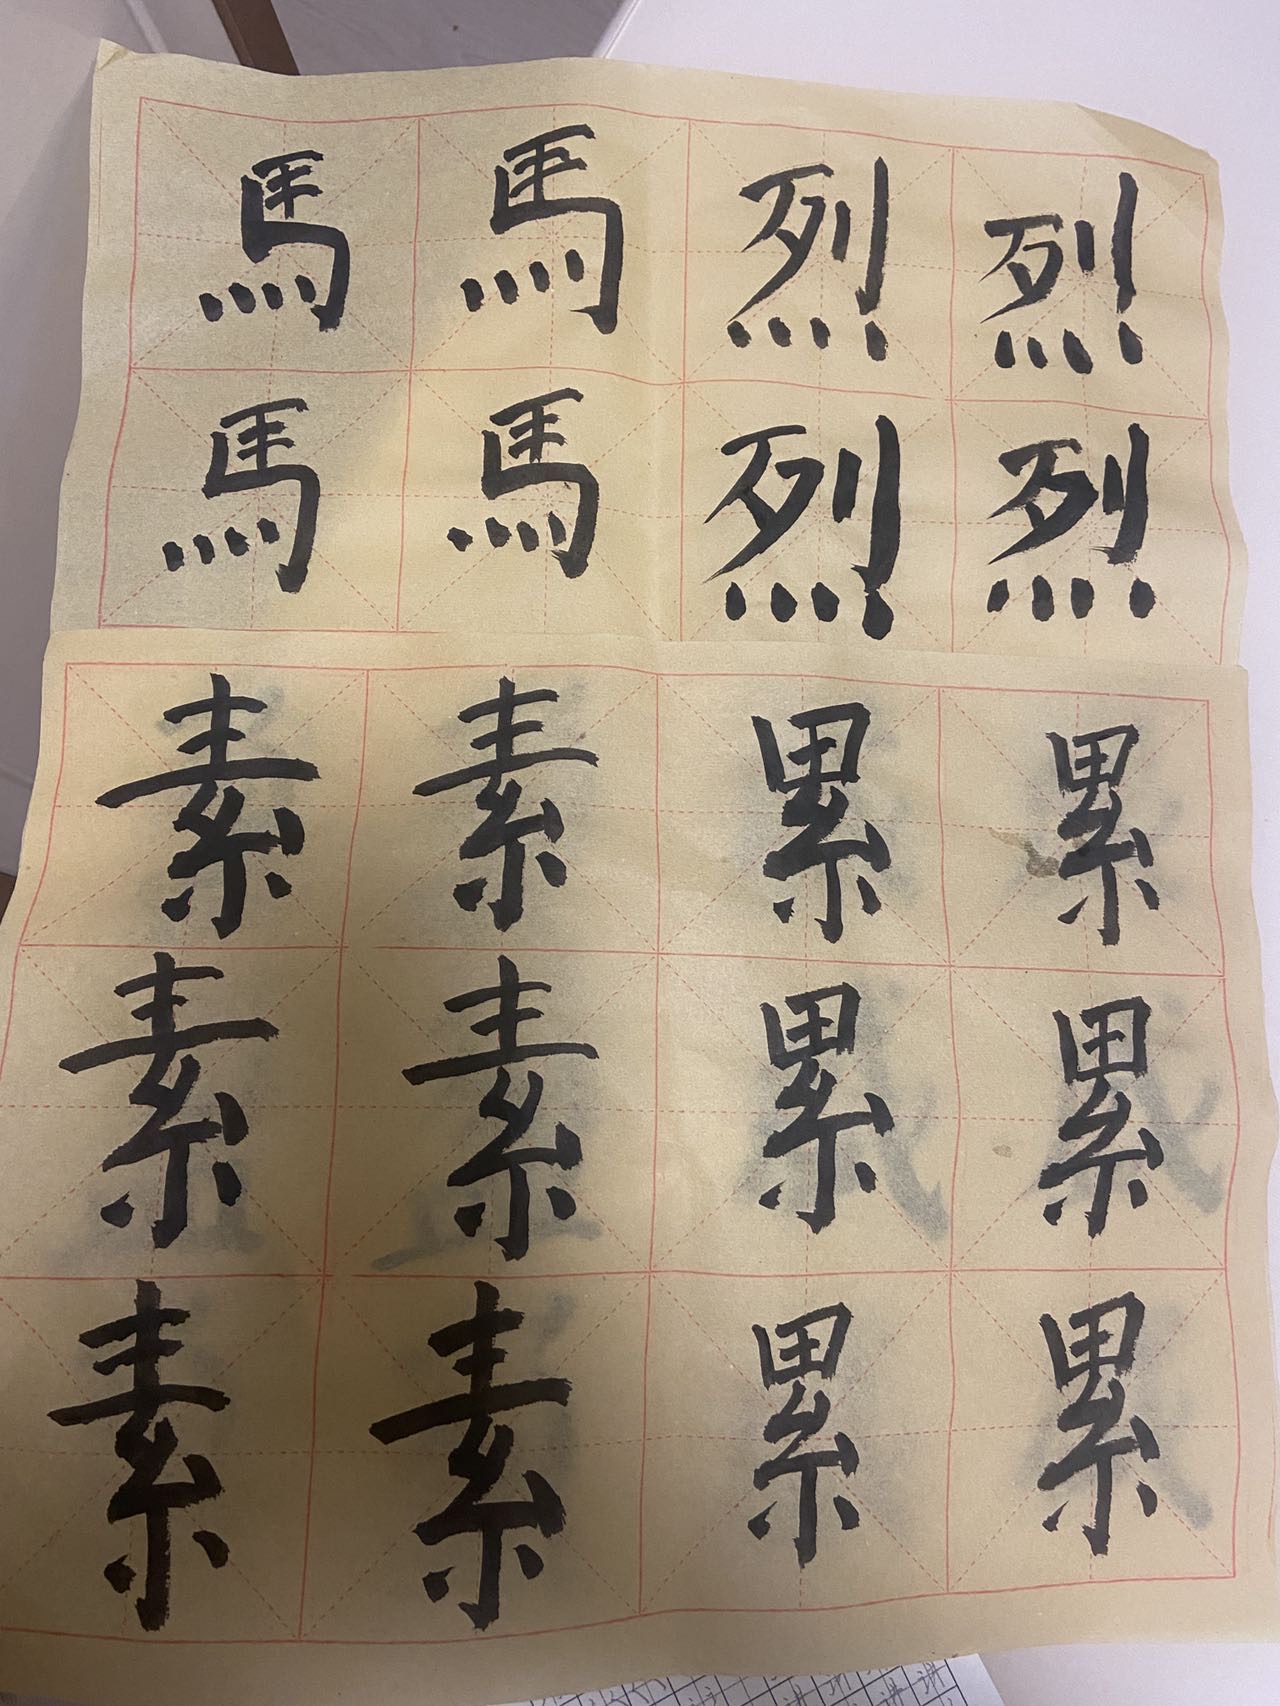 馬馬烈烈
馬馬烈烈
素素累累
素素累累
素素累累